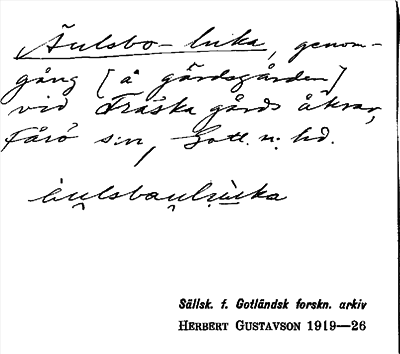 Äulsbo-luka, genom-
gång [å gärdsgården]
vid Träska gårds åkrar,
Fårö s:n, Gotl. n: hd.
Sällsk. f. Gotländsk forskn. arkiv
HERBERT GUSTAVSON 1919—26